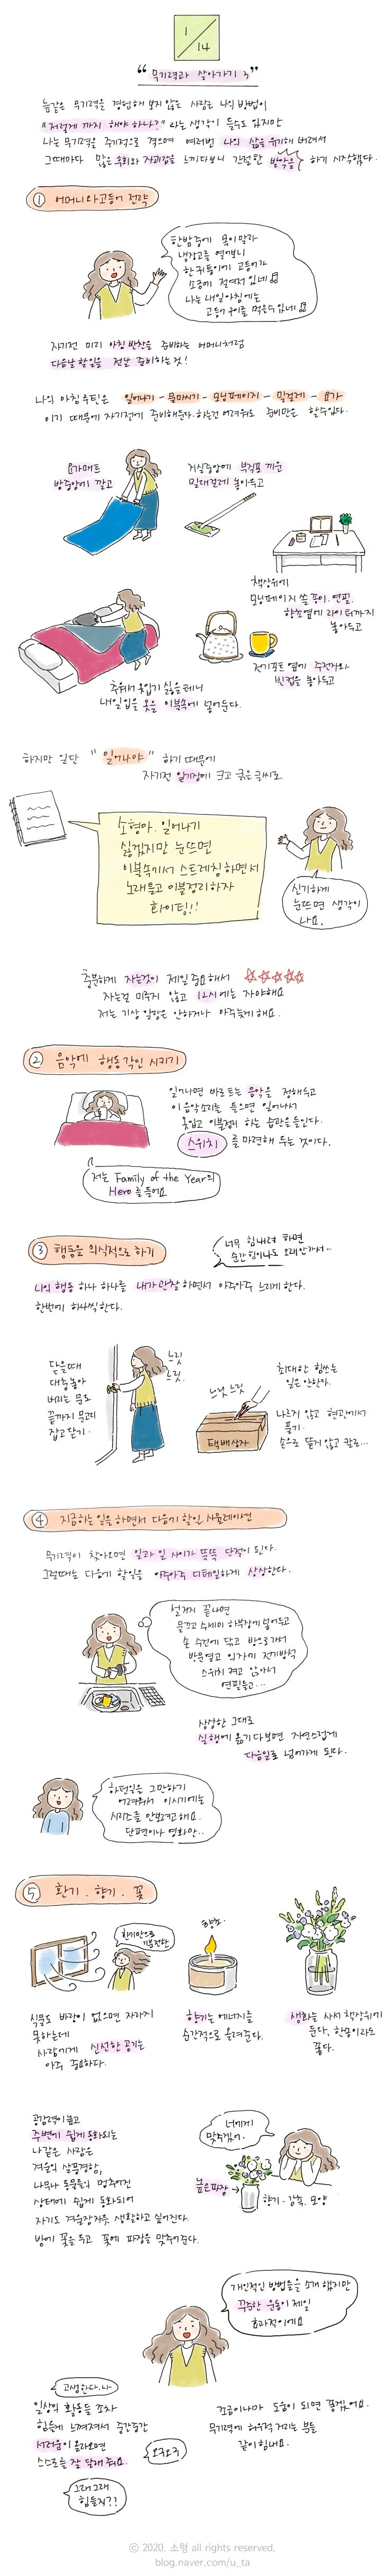 1/14
"무기력과 살아가기 3"
늪같은 무기력을 경험해 보지 않은 사람은 나의 방법이
"저렇게 까지 해야 하나?" 라는 생각이 들수도 있지만
나는 무기력을 주기적으로 겪으며 여러번 나의 삶을 유기해 버려서
그때마다 많은 후회와 자괴감을 느끼다보니 간절한 발악을 하기 시작했다.
① 어머니와고등어 전략
한밤중에 목이말라
냉장고를 열어보니
한귀퉁이에 고등어가
소금에 절여져 있네♫
나는 내일아침에는
고등어구이를 먹을수있네♫
자기전 미리 아침반찬을 준비하는 어머니처럼
다음날 할일을 전날 준비하는것!
나의 아침루틴은 일어나기 - 물마시기 - 모닝페이지 - 밀걸레 - 요가
이기 때문에 자기전에 준비해둔다. 하는건 어려워도 준비만은 할수있다.
요가매트
방중앙에 깔고
거실중앙에 부직포 끼운
밀대걸레 놓아두고
책상위에
모닝페이지 쓸 종이, 연필,
향초옆에 라이터까지
놓아두고
전기포트 옆에 주전자와
빈컵을 놓아두고
추워서 옷입기 싫을테니
내일 입을 옷을 이불속에 넣어둔다.
하지만 일단 "일어나야" 하기 때문에
자기전 일기장에 크고 굵은 글씨로
소형아. 일어나기
싫겠지만 눈뜨면
이불속에서 스트레칭하면서
노래틀고 이불정리하자
화이팅!!
신기하게
눈뜨면 생각이
나요.
충분하게 자는것이 제일 중요해서 ☆☆☆☆☆
자는걸 미루지 않고 12시에는 자야해요
저는 기상 알람은 안하거나 아주늦게 해요.
② 음악에 행동 각인 시키기
일어나면 바로트는 음악을 정해두고
이 음악소리를 들으면 일어나서
옷입고 이불정리 하는 습관을 들인다.
스위치 를 마련해 두는 것이다.
저는 Family of the Year의
Hero를 들어요
③ 행동을 의식적으로 하기
너무 힘내려 하면
순간 힘이나도 오래안가서..
나의 행동 하나 하나를 내가 관찰 하면서 아주아주 느리게 한다.
한번에 하나씩 한다.
닫을때
대충놓아
버리는 문도
끝까지 묵고디
잡고 닫기.
느릿
느릿.
느릿 느릿
택배상자
최대한 힘쓰는
일은 안한다.
나르지 않고 현관에서
풀기.
손으로 뜯지 않고 칼로...
④ 지금하는일을 하면서 다음에 할일 시뮬레이션
무기력이 찾아오면 일과 일 사이가 뚝뚝 단절이 된다.
그럴때는 다음에 할일을 아주아주 디테일하게 상상한다.
설거지 끝나면
물끄고 수세미 하부장에 넣어두고
손 수건에 닦고 방으로가서
방문열고 의자에 전기방석
스위치 켜고 앉아서
연필들고...
상상한 그대로
실행에 옮기다보면 자연스럽게
다음일로 넘어가게 된다.
하던일은 그만하기
어려워서 이시기에는
시리즈를 안보려고 해요.
단편이나 영화만..
⑤ 환기. 향기. 꽃
환기만으로
기분전환
향초.
식물도 바람이 없으면 자라지
못하는데
사람에게 신선한 공기는
아주 중요하다.
향기는 에너지를
순간적으로 올려준다.
생화를 사서 책상위에
둔다. 한송이라도
좋다.
공감력이 높고
주변에 쉽게 동화되는
나같은 사람은
겨울의 삭풍경함,
나무나 동물들의 멈추어진
상태에 쉽게 동화되어
자기도 겨울잠자듯 생활하고 싶어진다.
방에 꽃을 두고 꽃에 파장을 맞추어준다.
너에게
맞추겠어.
높은파장
향기. 감촉. 모양
개인적인 방법들을 소개 했지만
꾸준한 운동이 제일
효과적이에요
고생한다. 나
일상의 활동들 조차
힘들게 느껴져서 중간중간
서러움이 올라오면
스스로를 잘 달래 줘요.
오구오구
그래그래
힘들지??
조금이나마 도움이 되면 좋겠어요.
무기력에 허우적 거리는 분들
같이 힘내요.
ⓒ 2020. 소형 all rights reserved.
blog.naver.com/u_ta